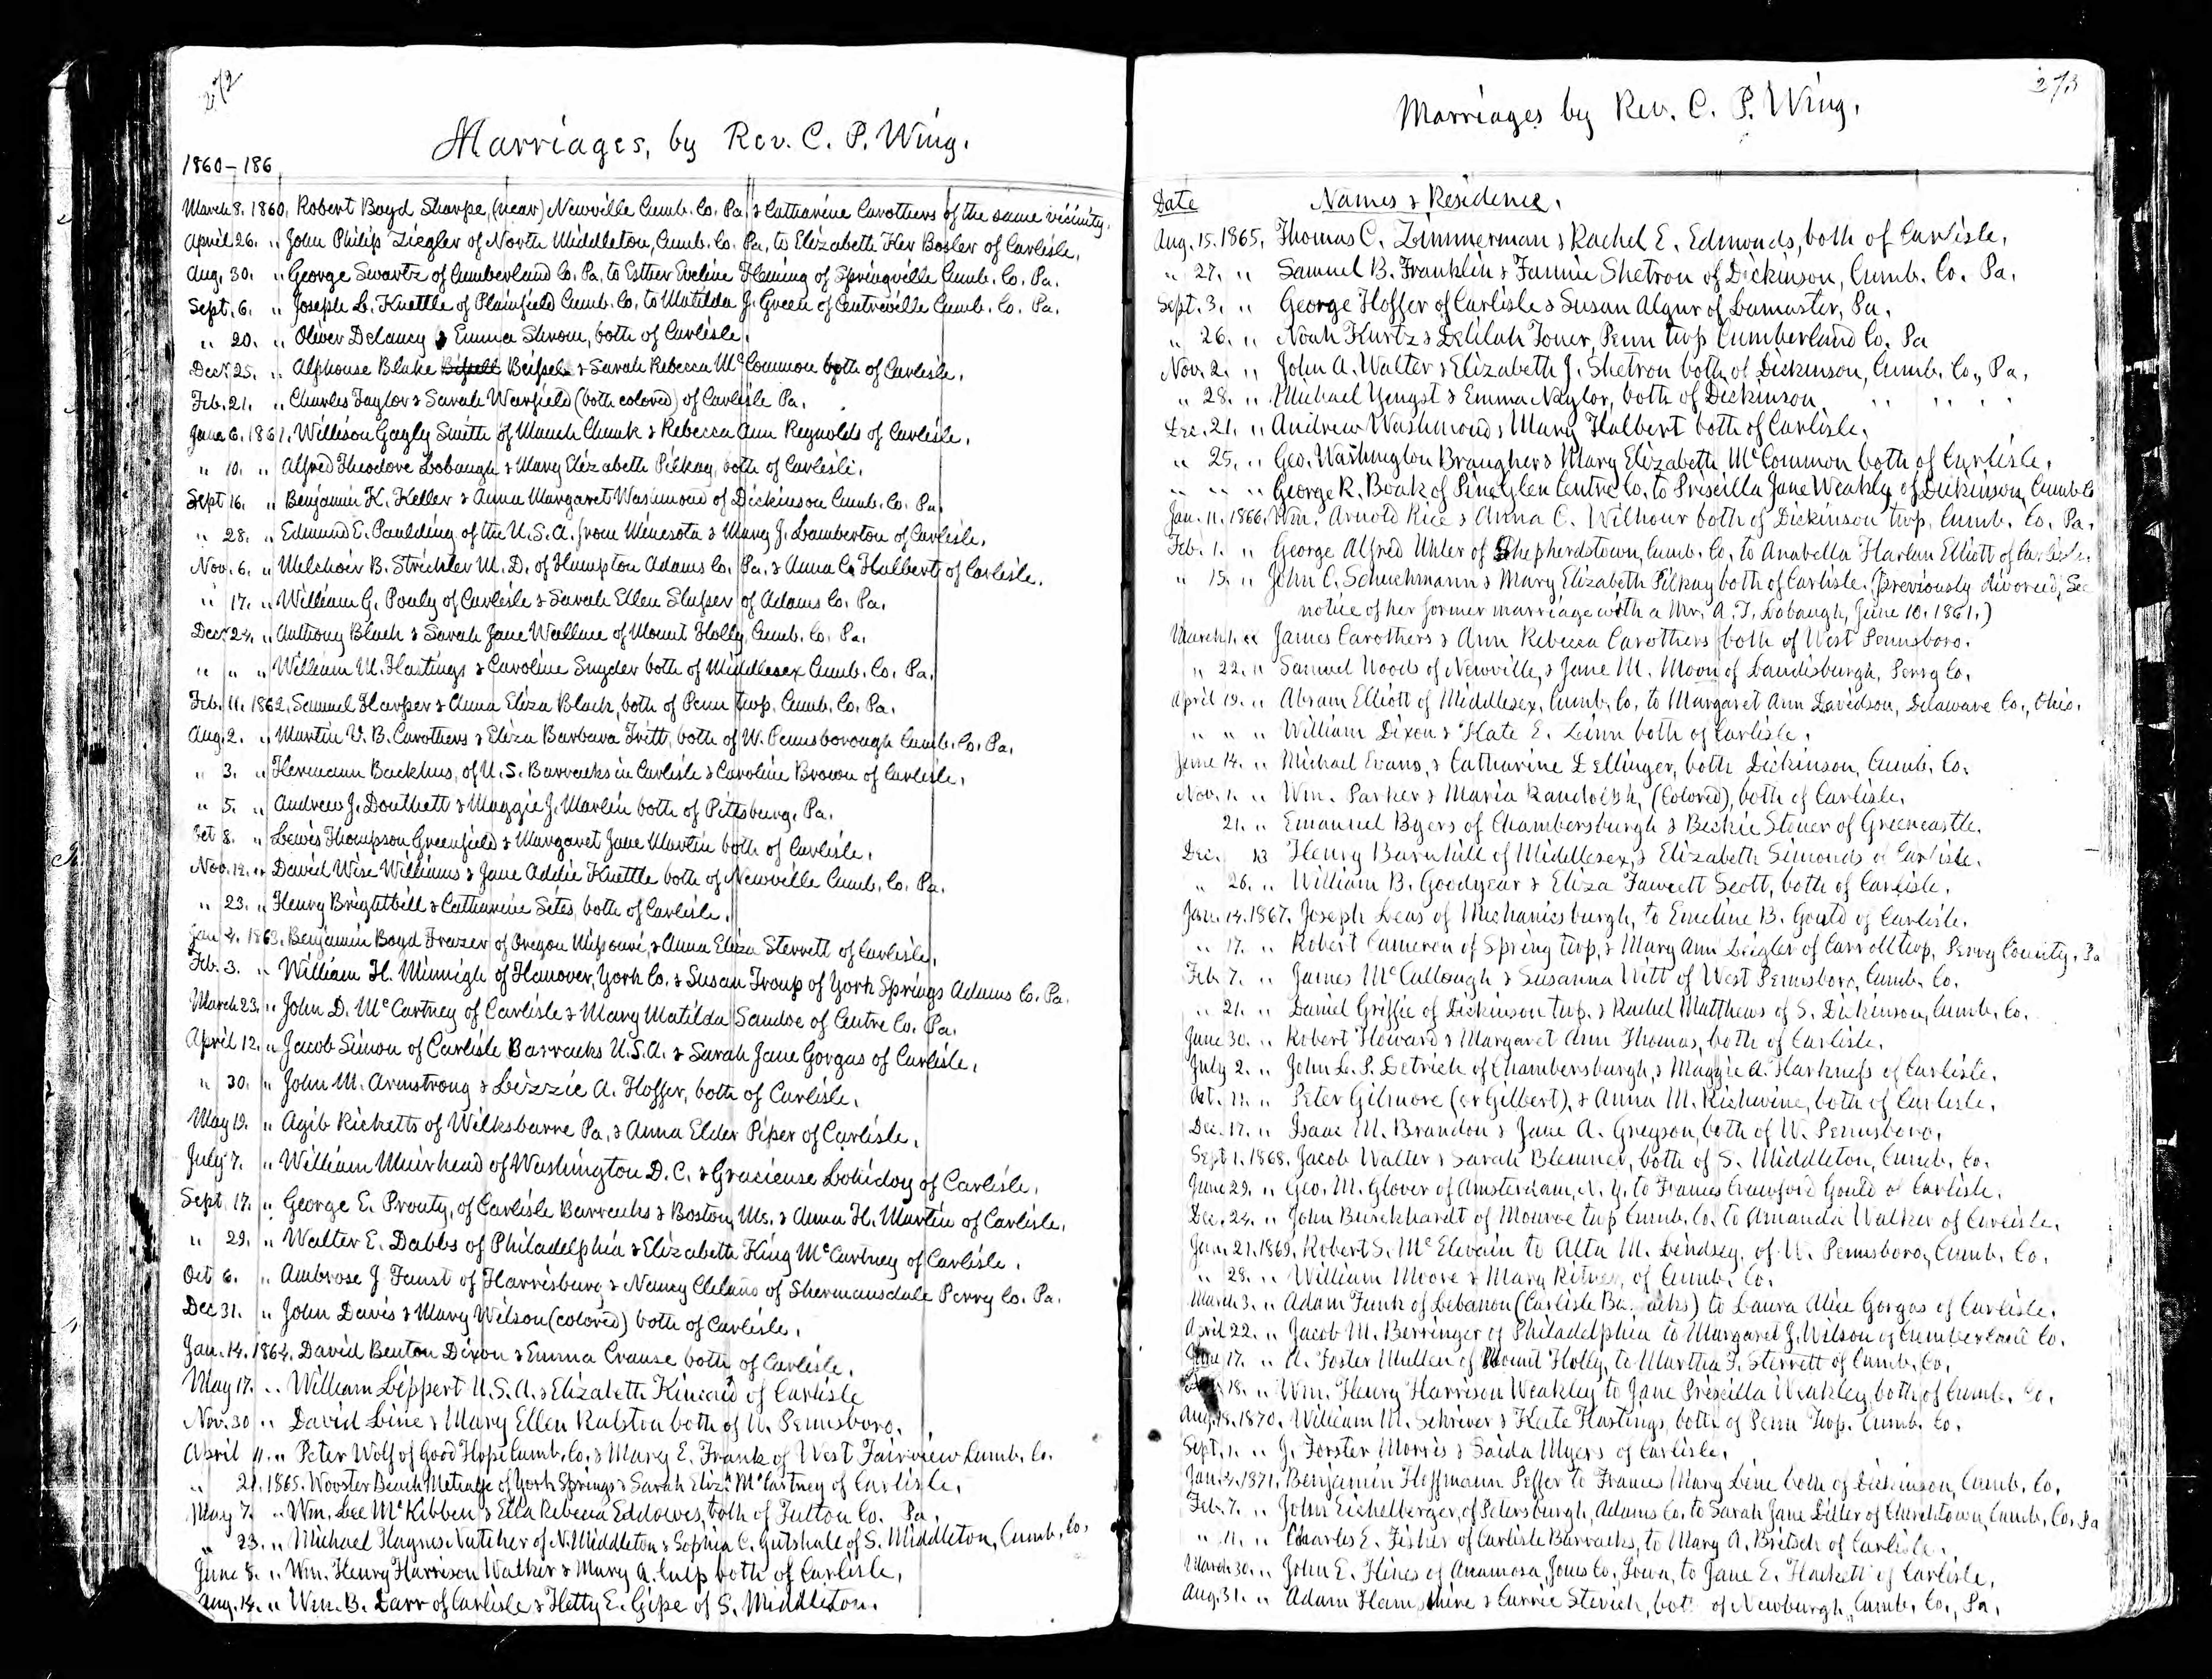 272
Marriages, by Rev. C. P. Wing.
1860-186
March 8. 1860, Robert Boyd Sharpe, (near) Newville Cumb. Co. Pa. & Catharine Carothers of the same vicinity.
April 26. " John Philip Ziegler of North Middleton, Cumb. Co. Pa. to Elizabeth Her Bosler of Carlisle.
Aug. 30. " George Swartz of Cumberland Co. Pa. to Esther Eveline Fleming of Springville Cumb. Co. Pa.
Sept. 6. " Joseph L. Knettle of Plainfield Cumb. Co. to Matilda J. Green of Centreville Cumb. Co. Pa.
" 20. " Oliver Delancy & Emma Shrom, both of Carlisle.
Decr. 25. " Alphonse Blake & Sarah Rebecca McCommon both of Carlisle.
Feb. 21. " Charles Taylor & Sarah Warfield (both colored) of Carlisle Pa.
June 6. 1861. Willison Gagly Smith of Mauch Chunk & Rebecca Ann Reynolds of Carlisle.
" 10. " Alfred Theodore Lobaugh & Mary Elizabeth Pilkay, both of Carlisle.
Sept 16. " Benjamin K. Keller & Anna Margaret Washmood of Dickinson Cumb. Co. Pa.
" 28. " Edmund E. Paulding of the U.S.A. from Minesota & Mary J. Lamberton of Carlisle.
Nov. 6. " Melchoir B. Strickler M.D. of Hampton Adams Co. Pa. & Anna C. Halbert of Carlisle.
" 17. " William G. Pouly of Carlisle & Sarah Ellen Slusser of Adams Co. Pa.
Decr 24. " Anthony Black & Sarah Jane Wallace of Mount Holly, Cumb. Co. Pa.
" " " William M. Hastings & Caroline Snyder both of Middlesex Cumb. Co. Pa.
Feb. 11. 1862. Samuel Harper & Anna Eliza Black, both of Penn twp. Cumb. Co. Pa.
Aug. 2. " Martin V. B. Carothers & Eliza Barbara Tritt, both of W. Pennsborough Cumb. Co. Pa.
" 3. " Hermann Backhus, of U.S. Barracks in Carlisle & Caroline Brown of Carlisle.
" 5. " Andrew J. Douthett & Maggie J. Marlin both of Pittsburg, Pa.
Oct 8. " Lewis Thompson Greenfield & Margaret Jane Martin both of Carlisle.
Nov. 12. " David Wise Williams & Jane Addie Knettle both of Newville Cumb. Co. Pa.
" 23. " Henry Brightbill & Catharine Sites, both of Carlisle.
Jan 4. 1863. Benjamin Boyd Frazer of Oregon Missouri, & Anna Eliza Sterrett of Carlisle.
Feb. 3. " William H. Minnigh of Hanover, York Co. & Susan Troup of York Springs Adams Co. Pa.
March 23. " John D. McCartney of Carlisle & Mary Matilda Sandoe of Centre Co. Pa.
April 12. " Jacob Simon of Carlisle Barracks U.S.A. & Sarah Jane Gorgas of Carlisle.
" 30. " John M. Armstrong & Lizzie A. Hoffer, both of Carlisle.
May 19. " Agib Ricketts of Wilksbarre Pa. & Anna Elder Piper of Carlisle.
July 7. " William Muirhead of Washington D.C. & Gracieuse of Carlisle.
Sept. 17. " George E. Prouty, of Carlisle Barracks & Boston, Ms. & Anna H. Martin of Carlisle.
" 29. " Walter E. Dabbs of Philadelphia & Elizabeth King McCartney of Carlisle.
Oct 6. " Ambrose J. Faust of Harrisburg & Nancy Cleland of Shermansdale Perry Co. Pa.
Dec 31. " John Davis & Mary Wilson (colored) both of Carlisle.
Jan. 14. 1864. David Benton Dixon & Emma Crause both of Carlisle.
May 17. " William Lippert U.S.A. & Elizabeth Kincaid of Carlisle
Nov. 30 " David Line & Mary Ellen Ralston both of W. Pennsboro.
April 11. " Peter Wolf of Good Hope Cumb. Co. & Mary E. Frank of West Fairview Cumb. Co.
" 21. 1865. Wooster Beach of York Springs & Sarah Eliz. McCartney of Carlisle.
May 7. " Wm. Lee McKibben & Ella Rebecca Eddowes, both of Fulton Co. Pa.
" 23. " Michael Haynes Natcher of N. Middleton & Sophia C. Gutshall of S. Middleton, Cumb. Co.
June 8. " Wm. Henry Harrison Walker & Mary A. Culp both of Carlisle.
Aug. 14. " Wm. B. Darr of Carlisle & Hetty E. Gipe of S. Middleton.
273
Marriages by Rev. C. P. Wing.
Date Names & Residence.
Aug. 15. 1865. Thomas C. Zimmerman & Rachel E. Edmonds, both of Carlisle.
" 27. " Samuel B. Franklin & Fannie Shetron of Dickinson, Cumb. Co. Pa.
Sept. 3. " George Hoffer of Carlisle & Susan Algur of Lancaster, Pa.
" 26. " Noah Kurtz & Delilah Toner, Penn twp Cumberland Co. Pa
Nov. 2. " John A. Walter & Elizabeth J. Shetron both of Dickinson, Cumb. Co., Pa.
" 28. " Michael Yengst & Emma Naylor, both of Dickinson " " " "
Dec. 21. " Andrew Washmood & Mary Halbert both of Carlisle.
" 25. " Geo. Washington Braugher & Mary Elizabeth McCommon both of Carlisle.
" " " George R. Boak of Pine Glen Centre Co. to Priscilla Jane Weakly of Dickinson, Cumb Co
Jan. 11. 1866. Wm. Arnold Rice & Anna C. Wilhour both of Dickinson twp. Cumb. Co. Pa.
Feb. 1. " George Alfred Uhler of Shepherdstown, Cumb. Co. to Anabella Harlan Elliott of Carlisle.
" 15. " John C. Schuchmann & Mary Elizabeth Pilkay both of Carlisle. (previously divorced, See
notice of her former marriage with a Mr. A. T. Lobaugh, June 10. 1861.)
March 1. " James Carothers & Ann Rebecca Carothers both of West Pennsboro.
" 22. " Samuel Woods of Newville, & Jane M. Moon of Landisburgh, Perry Co.
April 19. " Abram Elliott of Middlesex, Cumb. Co. to Margaret Ann Davidson, Delaware Co., Ohio.
" " " William Dixon & Kate E. Linn both of Carlisle.
June 14. " Michael Evans, & Catharine Dellinger, both Dickinson, Cumb. Co.
Nov. 1. " Wm. Parker & Maria Randolph, (Colored), both of Carlisle.
21. " Emanuel Byers of Chambersburgh & Beckie Stoner of Greencastle.
Dec. 13 Henry Barnhill of Middlesex, & Elizabeth Simonds of Carlisle.
" 26. " William B. Goodyear & Eliza Fawcett Scott, both of Carlisle.
Jan. 14. 1867. Joseph Leas of Mechanicsburgh, to Emeline B. Gould of Carlisle.
" 17. " Robert Cameron of Spring twp, & Mary Ann Zeigler of Carroll twp, Perry County, Pa
Feb. 7. " James McCullough & Susanna Witt of West Pennsboro, Cumb. Co.
" 21. " Daniel Griffie of Dickinson twp. & Rachel Matthews of S. Dickinson, Cumb. Co.
June 30. " Robert Howard & Margaret Ann Thomas, both of Carlisle.
July 2. " John L. P. Detrich of Chambersburgh, & Maggie A. Harkness of Carlisle.
Oct. 11. " Peter Gilmore (or Gilbert), & Anna M. Richwine, both of Carlisle.
Dec. 17. " Isaac M. Brandon & Jane A. Greyson, both of W. Pennsboro.
Sept 1. 1868. Jacob Walter & Sarah, both of S. Middleton, Cumb. Co.
June 29. " Geo. M. Glover of Amsterdam, N.Y. to Frances Crawford Gould of Carlisle.
Dec. 24. " John Burckhardt of Monroe twp Cumb. Co. to Amanda Walker of Carlisle.
Jan. 21. 1869. Robert S. McElwain to Alta M. Lindsey, of W. Pennsboro, Cumb. Co.
" 28. " William Moore & Mary Ritner, of Cumb. Co.
March 3. " Adam Funk of Lebanon (Carlisle Ba acks) to Laura Alice Gorgas of Carlisle.
April 22. " Jacob M. Berringer of Philadelphia to Margaret J. Wilson of Cumberland Co.
June 17. " A. Foster Mullen of Mount Holly, to Martha J. Sterrett of Cumb. Co.
18. " Wm. Henry Harrison Weakley to Jane Priscilla Weakley both of Cumb. Co.
Aug. 18. 1870. William M. Schriver & Kate Hastings, both of Penn twp. Cumb. Co.
Sept. 1. " J. Forster Morris & Saida Myers of Carlisle.
Jan. 4. 1871. Benjamin Hoffmann Peffer to Frances Mary Line both of Dickinson, Cumb. Co.
Feb. 7. " John Eichelberger, of Petersburgh, Adams Co. to Sarah Jane Diller of Churchtown, Cumb. Co. Pa
" 11. " Charles E. Fisher of Carlisle Barracks, to Mary A. Britsch of Carlisle.
March 30. " John E. Hines of Anamosa, Jones Co. Iowa, to Jane E. Hackett of Carlisle.
Aug. 31. " Adam Hamshire & Carrie Stevick, both of Newburgh, Cumb. Co., Pa.